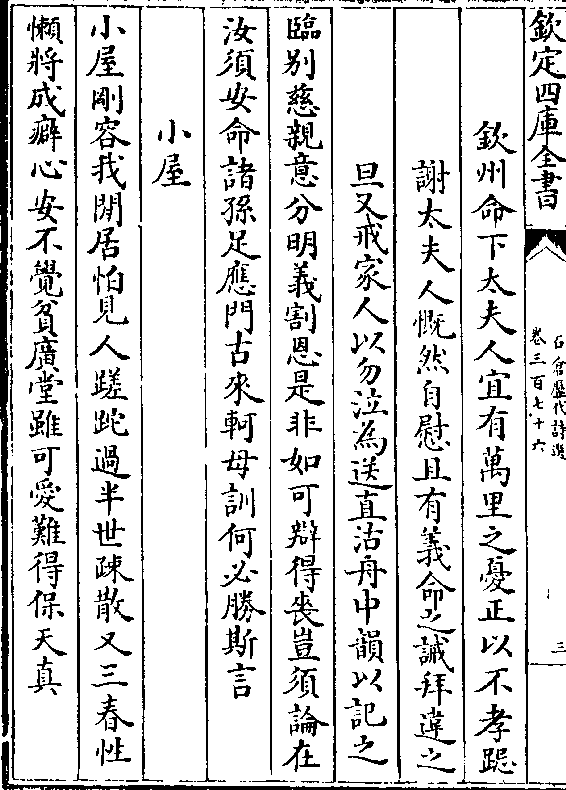 欽定四庫全書
石倉歷代詩選
卷三百七十六
三
欽州命下太夫人宜有萬里之憂正以不孝跽
謝太夫人慨然自慰且有義命之誡拜違之
旦又戒家人以勿泣為送直沽舟中韻以記之
臨別慈親意分明義割恩是非如可辯得喪豈須論在
汝須安命諸孫足應門古來軻母訓何必勝斯言
小屋
小屋剛容我閒居怕見人蹉跎過半世疎散又三春性
懶將成癖心安不覺貧廣堂雖可愛難得保天真